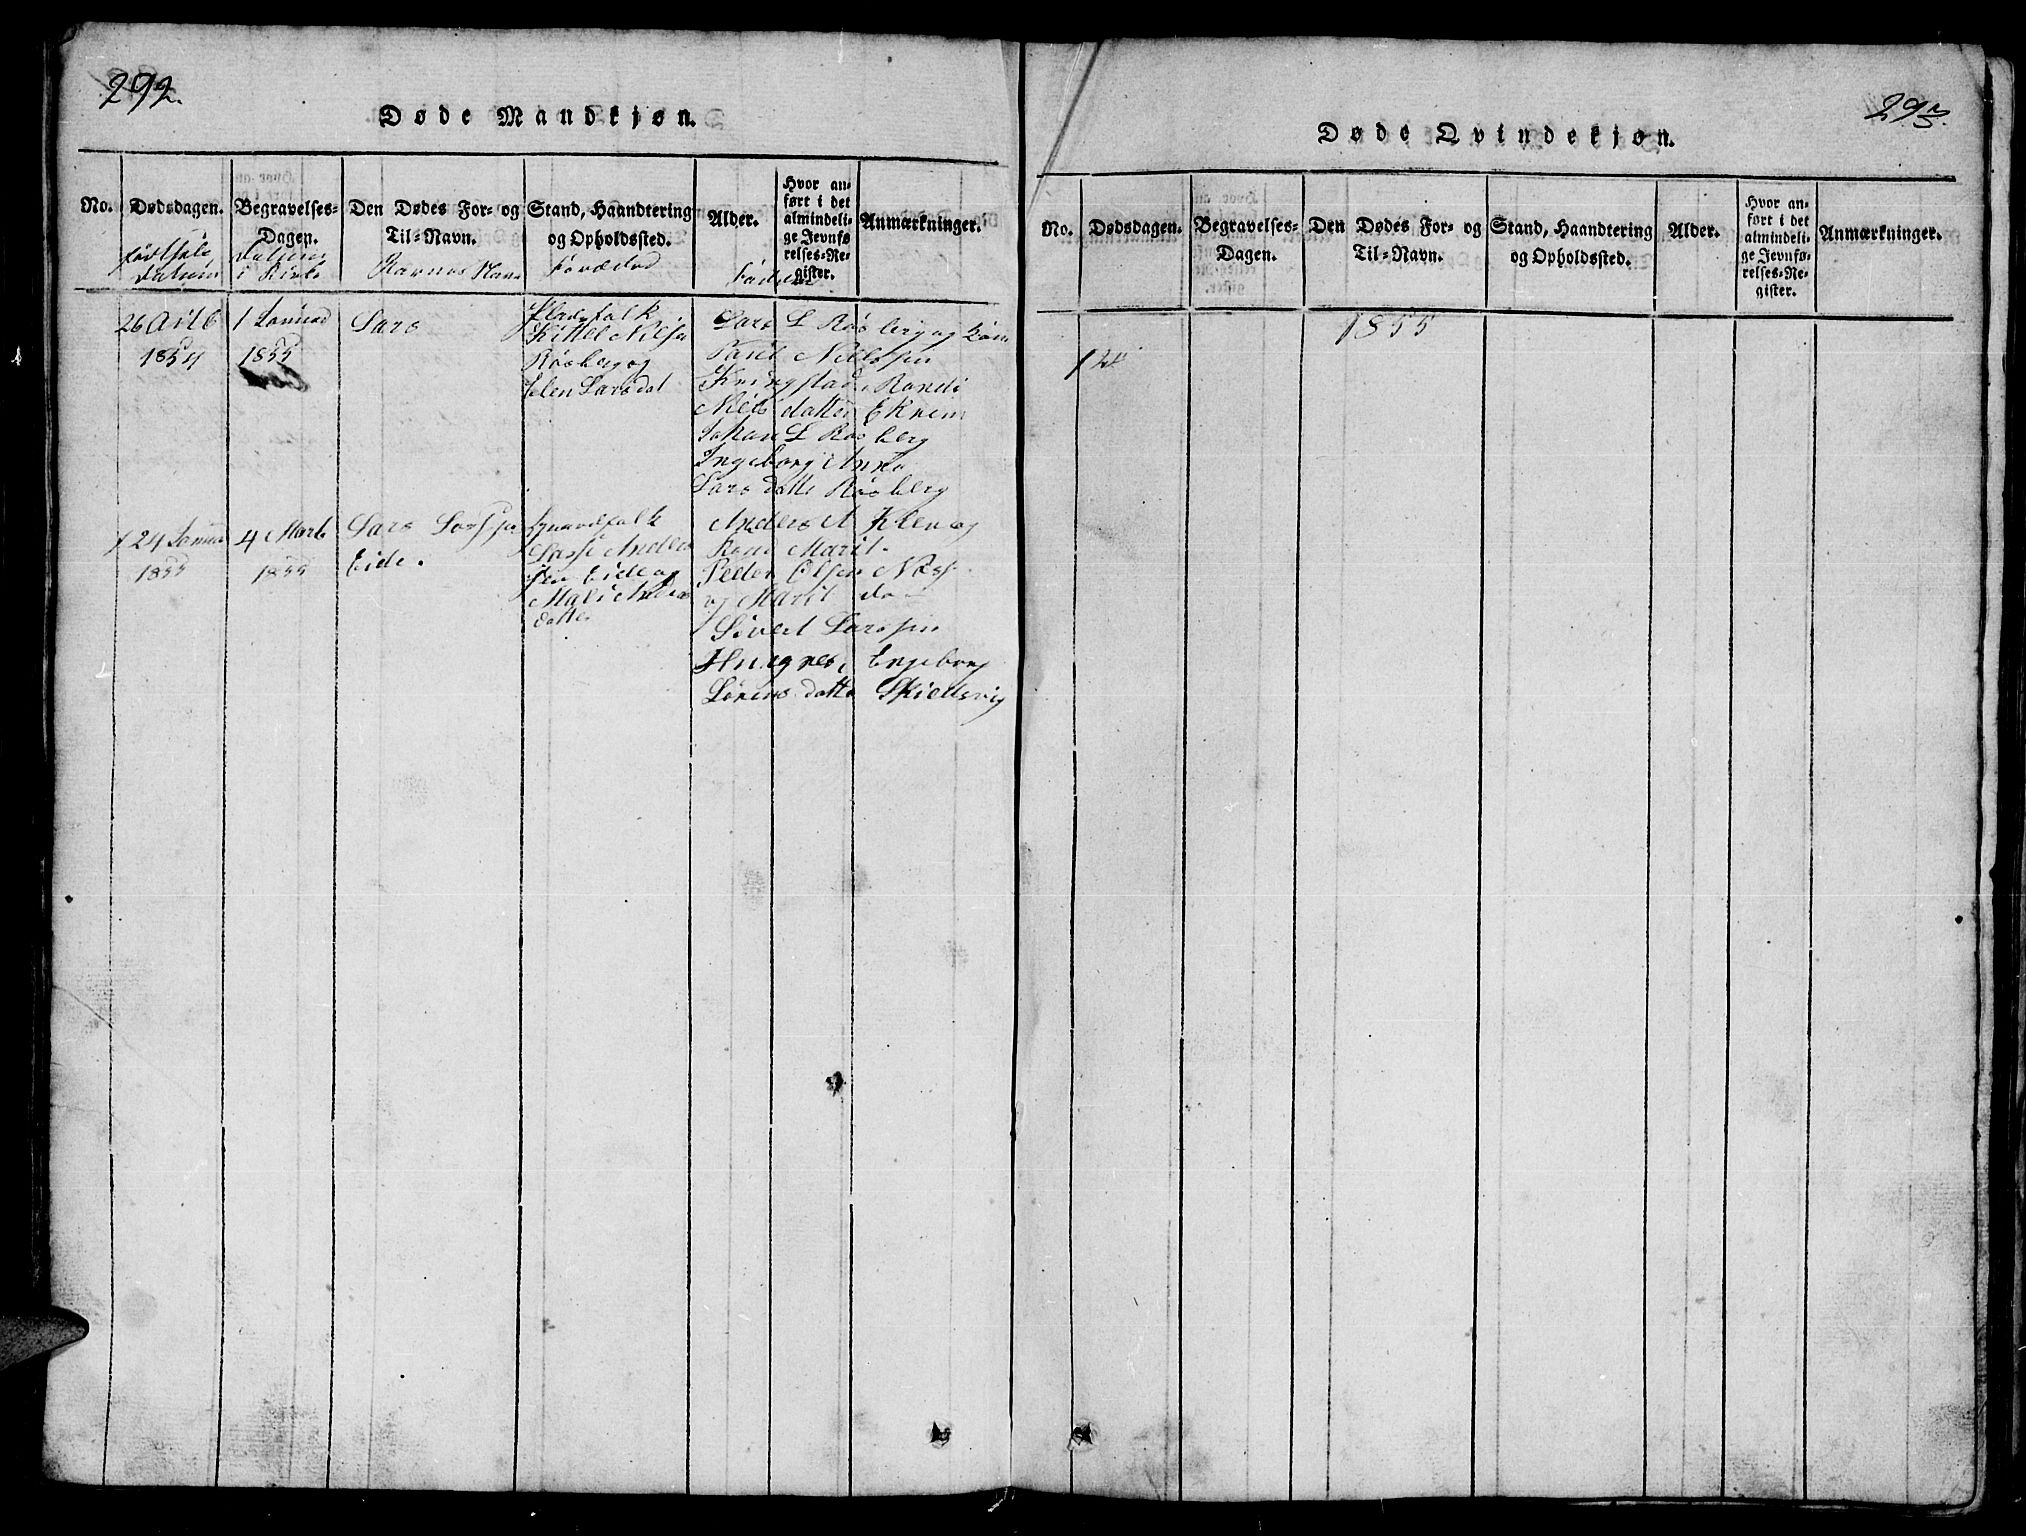 292.
Døde Mandkjøn.
No.
Dødsdagen.
Begravelses-
Dagen.
Den Dødes For- og
Til-Navn.
Stand, Haandtering
og Opholdssted.
Alder.
Hvor an-
ført i det
almindeli-
ge Jevnfø
relses-Re-
gister.
Anmærkninger.
Datum
i Kirke
Navn
Fadder
26
1854
1 Januar
1855
Lars
folk
Kittel Nilsen
Røsberg og
Elen Larsdat
Lars L Røsberg og Kone
Nielssen
Kringstad, Randi
Niels datter Eknem
Johan L Røsberg
Ingeborg Anna
Lars datte Røsberg
24 Januar
1855
4 Marts
1855
Lars Lassen
Eide.
Gaardfolk
Lasse Anders
sen Eide og
Mali Anders
datte
Anders A Klen og
Kone Marit
Peder Olsen Næss
og Marit do
Sivert Larssen
Engeborg
Lorens datte
293.
Døde Qvindekjøn.
No.
Dødsdagen.
Begravelses-
Dagen.
Den Dødes For- og
Til-Navn.
Stand, Haandtering
og Opholdssted.
Alder.
Hvor an-
ført i det
almindeli-
ge Jevnfø-
relses-Re-
gister.
Anmærkninger.
1855